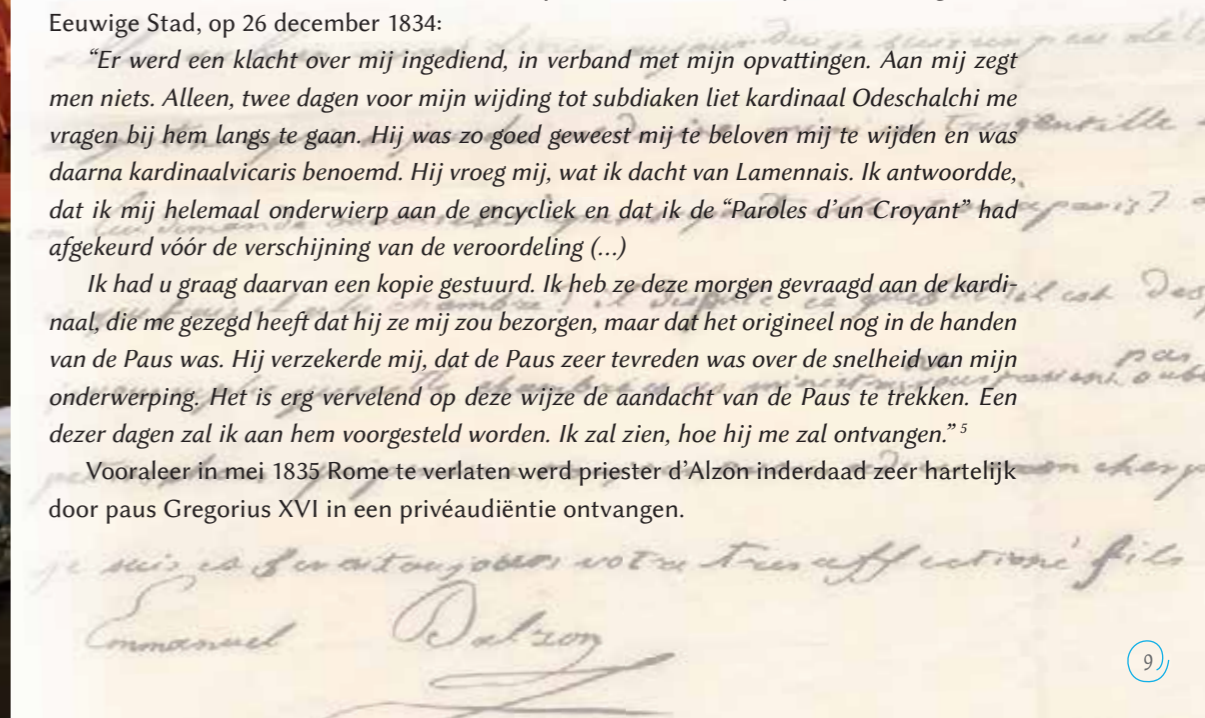 Eeuwige Stad, op 26 december 1834:
“Er werd een klacht over mij ingediend, in verband met mijn opvattingen. Aan mij zegt
men niets. Alleen, twee dagen voor mijn wijding tot subdiaken liet kardinaal Odeschalchi me
vragen bij hem langs te gaan. Hij was zo goed geweest mij te beloven mij te wijden en was
daarna kardinaalvicaris benoemd. Hij vroeg mij, wat ik dacht van Lamennais. Ik antwoordde,
dat ik mij helemaal onderwierp aan de encycliek en dat ik de “Paroles d’un Croyant” had
afgekeurd vóór de verschijning van de veroordeling (...)
Ik had u graag daarvan een kopie gestuurd. Ik heb ze deze morgen gevraagd aan de kardi-
naal, die me gezegd heeft dat hij ze mij zou bezorgen, maar dat het origineel nog in de handen
van de Paus was. Hij verzekerde mij, dat de Paus zeer tevreden was over de snelheid van mijn
onderwerping. Het is erg vervelend op deze wijze de aandacht van de Paus te trekken. Een
dezer dagen zal ik aan hem voorgesteld worden. Ik zal zien, hoe hij me zal ontvangen.” 5
Vooraleer in mei 1835 Rome te verlaten werd priester d’Alzon inderdaad zeer hartelijk
door paus Gregorius XVI in een privéaudiëntie ontvangen.
je suis votre tres affectioné fils
Emmanuel Dalzon
9